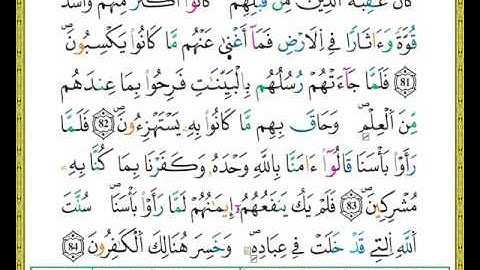 كَانَ عَٰقِبَةُ ٱلَّذِينَ مِن قَبْلِهِمْ كَانُوٓا۟ أَكْثَرَ مِنْهُمْ وَأَشَدَّ
قُوَّةً وَءَاثَارًا فِى ٱلْأَرْضِ فَمَآ أَغْنَىٰ عَنْهُم مَّا كَانُوا۟ يَكْسِبُونَ ۖ
81 فَلَمَّا جَآءَتْهُمْ رُسُلُهُم بِٱلْبَيِّنَٰتِ فَرِحُوا۟ بِمَا عِندَهُم
مِّنَ ٱلْعِلْمِ ۖ وَحَاقَ بِهِم مَّا كَانُوا۟ بِهِۦ يَسْتَهْزِءُونَ ۖ 82 فَلَمَّا
رَأَوْا۟ بَأْسَنَا قَالُوٓا۟ ءَامَنَّا بِٱللَّهِ وَحْدَهُۥ وَكَفَرْنَا بِمَا كُنَّا بِهِۦ
مُشْرِكِينَ ۖ 83 فَلَمْ يَكُ يَنفَعُهُمُۥٓ إِيمَٰنُهُمْ لَمَّا رَأَوْا۟ بَأْسَنَا ۖ سُنَّتَ
ٱللَّهِ ٱلَّتِى قَدْ خَلَتْ فِى عِبَادِهِۦ ۖ وَخَسِرَ هُنَالِكَ ٱلْكَٰفِرُونَ ۖ 84